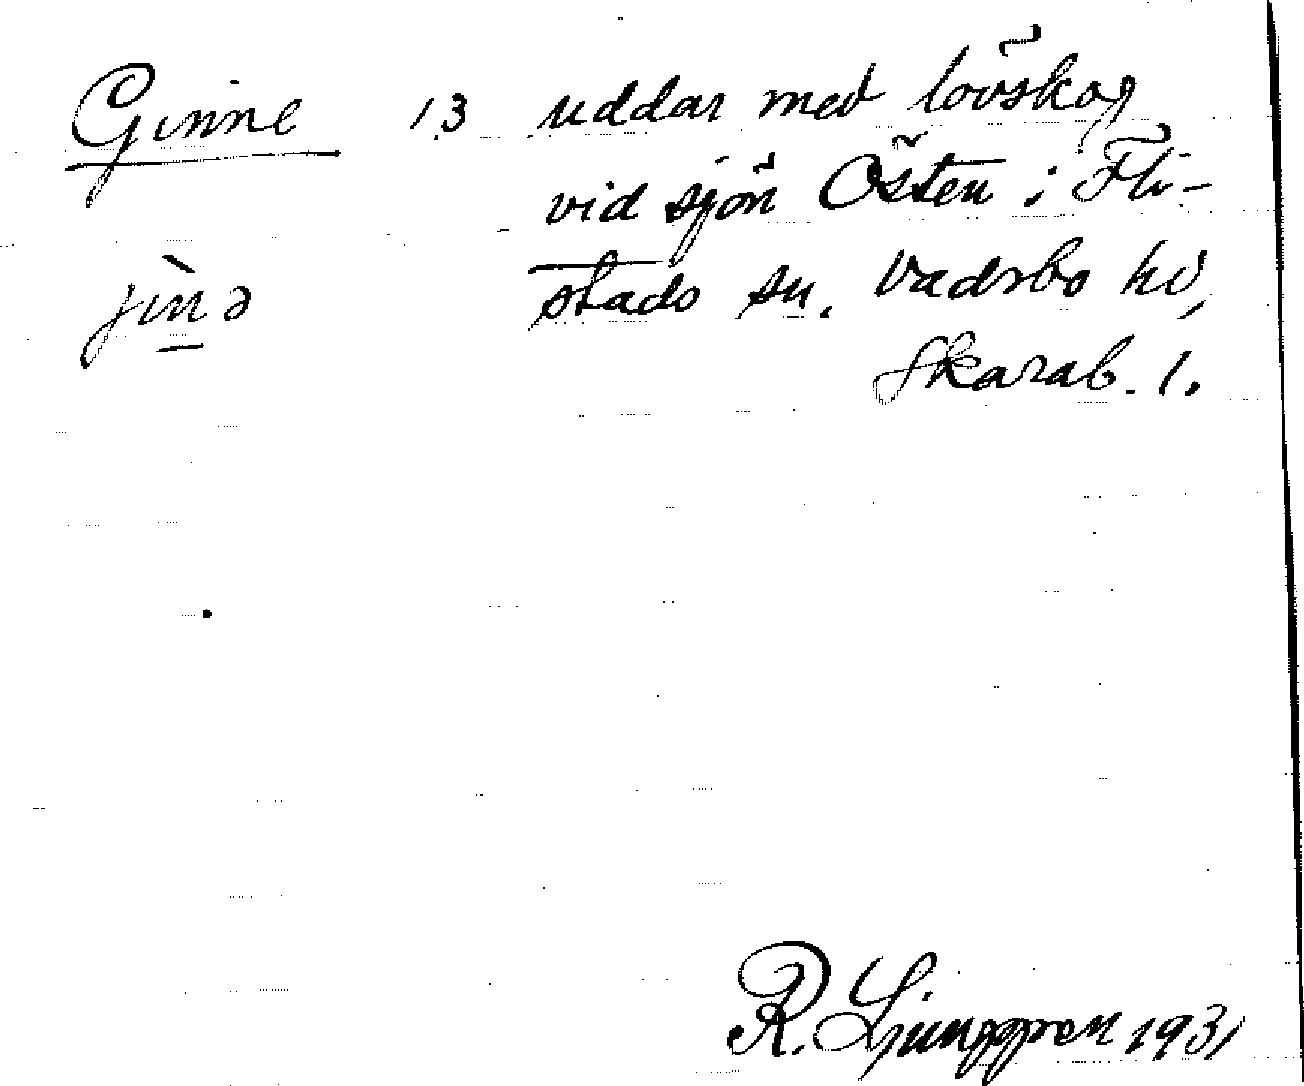 Ginne 13 uddar med lövskog
vid sjön Östen i Fli-
jìnə stads sn. Vadsbo hd,
Skarab. l.
R. Ljunggren 1931